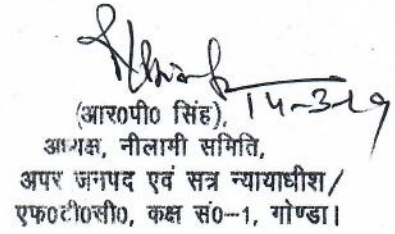 (आर0पी0 सिंह), 14-3-19
अध्यक्ष, नीलामी समिति,
अपर जनपद एवं सत्र न्यायाधीश/
एफ0टी0सी0, कक्ष सं0-1, गोण्डा।